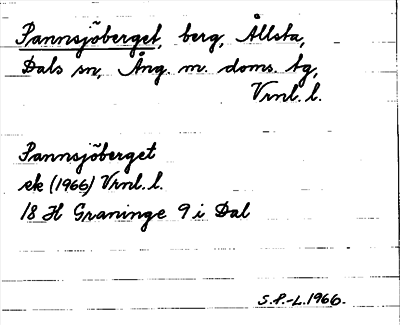 Pannsjöberget, berg, Ållsta,
Dals sn, Ång. m. doms. tg,
Vrnl. l.
Pannsjöberget
ek (1966) Vrnl. l.
18 H Graninge 9 i Dal
S.P.-L. 1966.